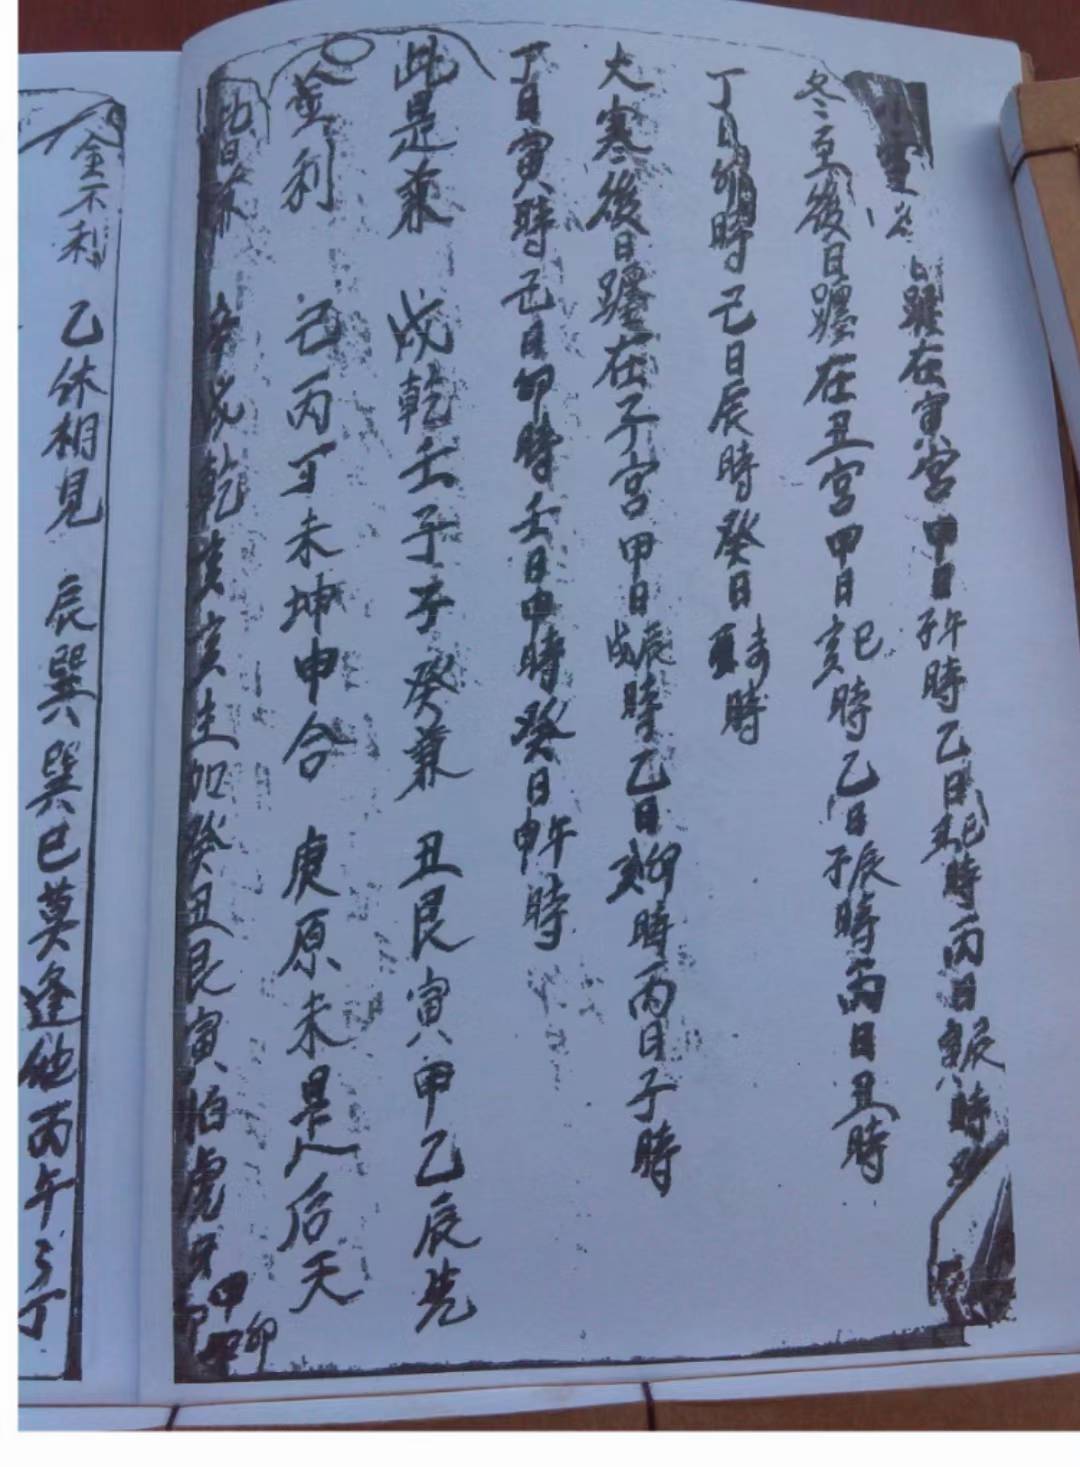 躔在寅宮甲日子午時乙日亥巳時丙日寅辰時
冬至後日躔在丑宮甲日亥巳時乙日子辰時丙日丑時
丁日卯時己日辰時癸日時
大寒後日躔在子宮甲日戌辰時乙日亥卯時丙日子時
丁日寅時己日卯時壬日申時癸日申午時
此是兼 戌乾壬子子癸兼 丑艮寅甲乙辰先
金利 己丙丁未坤申合 庚原未是后天
戌乾亥亥生加癸丑艮寅怕虎牙甲卯
金不利 乙休相見 辰巽巽巳莫逢他丙午丁